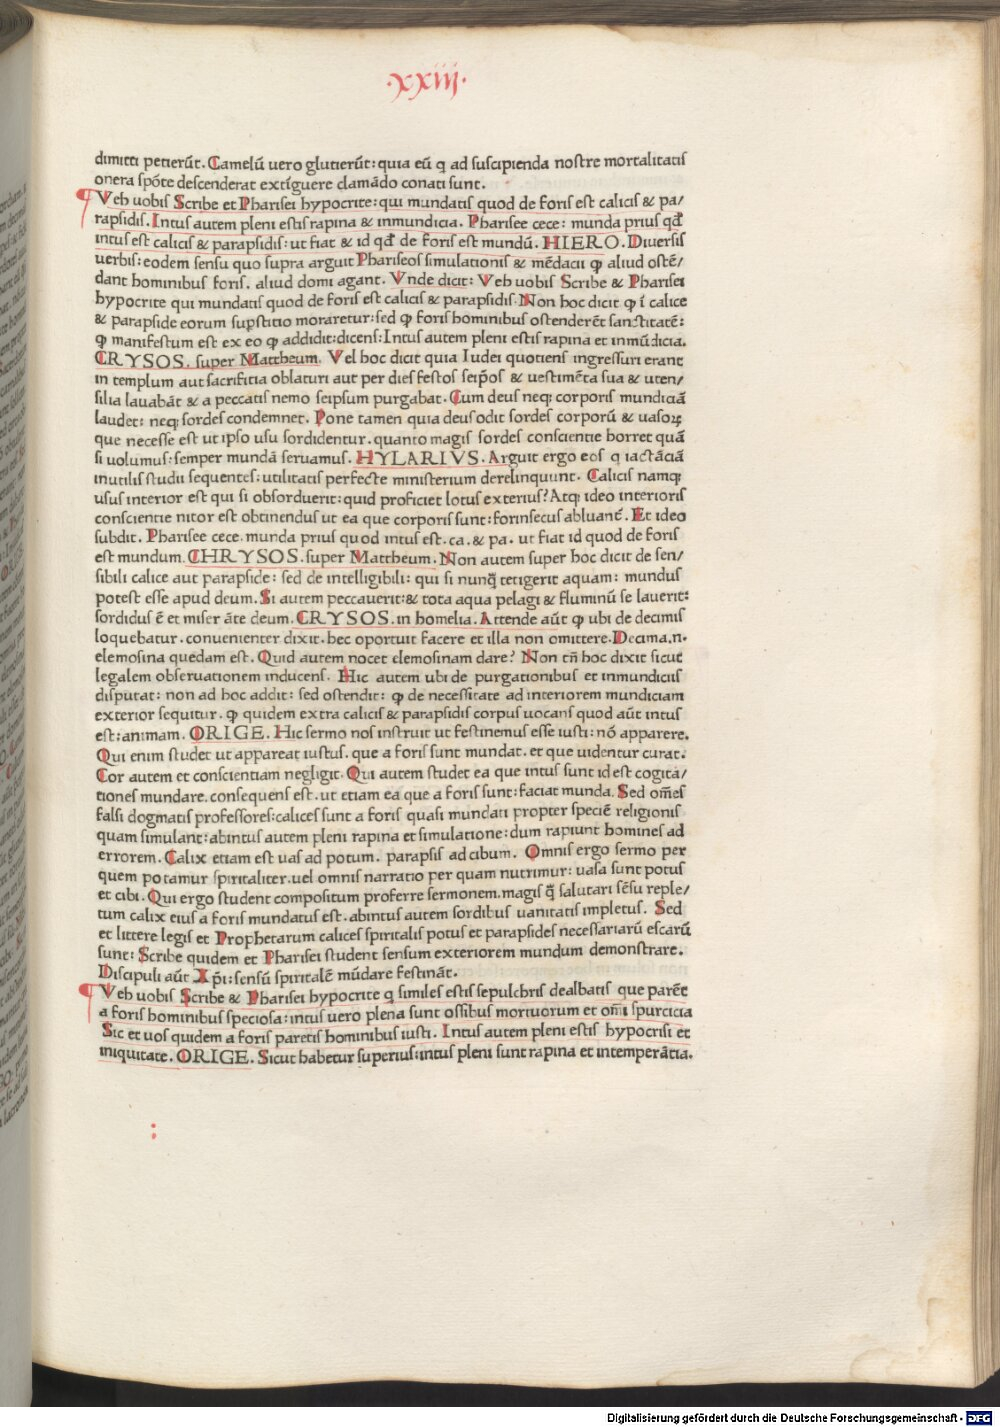 ·xxiij·
dimitti petierūt. Camelū uero glutierūt: quia eū q ad suscipienda nostre mortalitatis
onera spōte descenderat extīguere clamādo conati sunt.
Veh uobis Scribe et Pharisei hypocrite: qui mundatis quod de foris est calicis & pa/
rapsidis. Intus autem pleni estis rapina & inmundicia. Pharisee cece: munda prius qđ
intus est calicis & parapsidis: ut fiat & id qđ de foris est mundū. HIERO. Diuersis
uerbis: eodem sensu quo supra arguit Phariseos simulationis & mēdacii ꝙ aliud ostē/
dant hominibus foris. aliud domi agant. Vnde dicit: Veh uobis Scribe & Pharisei
hypocrite qui mundatis quod de foris est calicis & parapsidis. Non hoc dicit ꝙ ī calice
& parapside eorum supstitio moraretur: sed ꝙ foris hominibus ostenderēt sanctitatē:
ꝙ manifestum est ex eo ꝙ addidit: dicens: Intus autem pleni estis rapina et inmūdicia.
CRYSOS. super Mattheum. Vel hoc dicit quia Iudei quotiens ingressuri erant
in templum aut sacrificia oblaturi aut per dies festos seip̄os & uestimēta sua & uten/
silia lauabāt & a peccatis nemo seipsum purgabat. Cum deus neq; corporis mundiciā
laudet: neq; sordes condemnet. Pone tamen quia deus odit sordes corporū & uasoꝝ
que necesse est ut ipso usu sordidentur. quanto magis sordes conscientie horret quā
si uolumus: semper mundā seruamus. HYLARIVS. Arguit ergo eos q iactāciā
inutilis studii sequentes: utilitatis perfecte ministerium derelinquunt. Calicis namq;
usus interior est qui si obsorduerit: quid proficiet lotus exterius? Atq; ideo interioris
conscientie nitor est obtinendus ut ea que corporis sunt: forinsecus abluant̄. Et ideo
subdit. Pharisee cece. munda prius quod intus est. ca. & pa. ut fiat id quod de foris
est mundum. CHRYSOS. super Mattheum. Non autem super hoc dicit de sen/
sibili calice aut parapside: sed de intelligibili: qui si nunq̄ tetigerit aquam: mundus
potest esse apud deum. Si autem peccauerit: & tota aqua pelagi & fluminū se lauerit:
sordidus ē et miser āte deum. CRYSOS. in homelia. Attende aūt ꝙ ubi de decimis
loquebatur. conuenienter dixit. hec oportuit facere et illa non omittere. Decima.n.
elemosina quedam est. Quid autem nocet elemosinam dare? Non tn̄ hoc dixit sicut
legalem obseruationem inducens. Hic autem ubi de purgationibus et inmundiciis
disputat: non ad hoc addit: sed ostendit: ꝙ de necessitate ad interiorem mundiciam
exterior sequitur. ꝙ quidem extra calicis & parapsidis corpus uocans quod aūt intus
est: animam. ORIGE. Hic sermo nos instruit ut festinemus esse iusti: nō apparere.
Qui enim studet ut appareat iustus. que a foris sunt mundat. et que uidentur curat.
Cor autem et conscientiam negligit. Qui autem studet ea que intus sunt id est cogita/
tiones mundare. consequens est. ut etiam ea que a foris sunt: faciat munda. Sed om̄es
falsi dogmatis professores: calices sunt a foris quasi mundati propter speciē religionis
quam simulant: abintus autem pleni rapina et simulatione: dum rapiunt homines ad
errorem. Calix etiam est uas ad potum. parapsis ad cibum. Omnis ergo sermo per
quem potamur spiritaliter. uel omnis narratio per quam nutrimur: uasa sunt potus
et cibi. Qui ergo student compositum proferre sermonem. magis q̄ salutari sēsu reple/
tum calix eius a foris mundatus est. abintus autem sordibus uanitatis impletus. Sed
et littere legis et Prophetarum calices spiritalis potus et parapsides necessariarū escarū
sunt: Scribe quidem et Pharisei student sensum exteriorem mundum demonstrare.
Discipuli aūt Xp̄i: sensū spiritalē mūdare festināt.
Veh uobis Scribe & Pharisei hypocrite q similes estis sepulchris dealbatis que parēt
a foris hominibus speciosa: intus uero plena sunt ossibus mortuorum et om̄i spurcicia
Sic et uos quidem a foris paretis hominibus iusti. Intus autem pleni estis hypocrisi et
iniquitate. ORIGE. Sicut habetur superius: intus pleni sunt rapina et intemperātia.
Digitalisierung gefördert durch die Deutsche Forschungsgemeinschaft - DFG